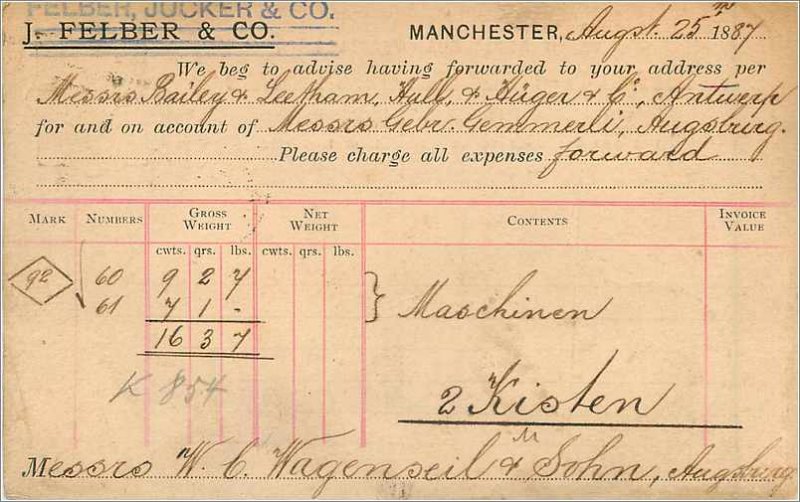 FELBER, JUCKER & CO.
J. FELBER & CO. MANCHESTER, Augst. 25th 1887
We beg to advise having forwarded to your address per
Messrs Bailey & Leetham, Hull, & Küger & Co, Antwerp
for and on account of Messrs Gebr. Gemmerli, Augsburg.
Please charge all expenses forward
MARK NUMBERS GROSS WEIGHT NET WEIGHT CONTENTS INVOICE VALUE
cwts. qrs. lbs. cwts. qrs. lbs.
92 60 9 2 7
61 7 1 - Maschinen
16 3 7
K 854
2 Kisten
Messrs W. C. Wagenseil & Sohn, Augsburg